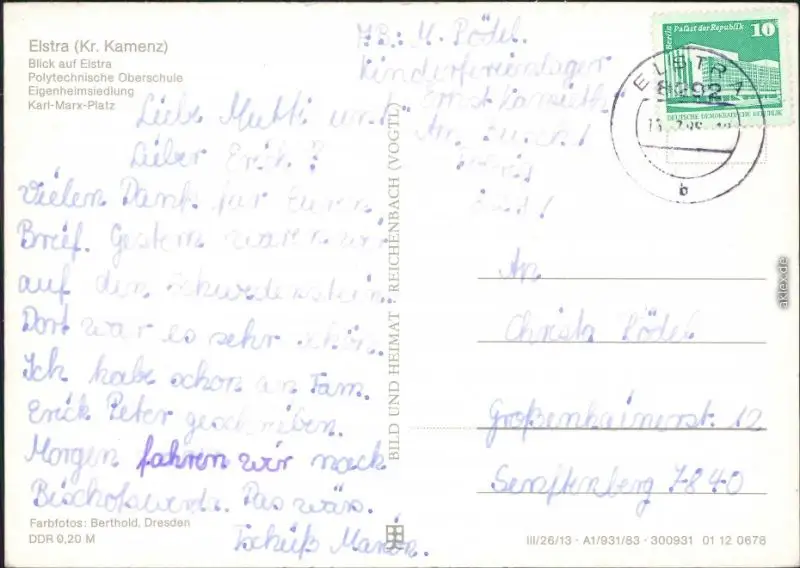 Elstra (Kr. Kamenz)
Blick auf Elstra
Polytechnische Oberschule
Eigenheimsiedlung
Karl-Marx-Platz
AB.: M. Pödel.
Kinderferienlager
Liebe Mutti und
Lieber Erich!
Vielen Dank für Euren
Brief. Gestern waren wir
auf den
Dort war es sehr schön.
Ich habe schon an Fam.
Erick Peter geschrieben.
Morgen fahren wir nach
Bischofswerda. Das wärs.
Tschüß
Farbfotos: Berthold, Dresden
DDR 0,20 M
BILD UND HEIMAT REICHENBACH (VOGTL)
Berlin Palast der Republik 10
DEUTSCHE DEMOKRATISCHE REPUBLIK
ELSTRA 1
8292
b
An
Christa Pödel
Großenhainerstr. 12
Senftenberg 7840
III/26/13 · A1/931/83 · 300931 01 12 0678
aklex.de